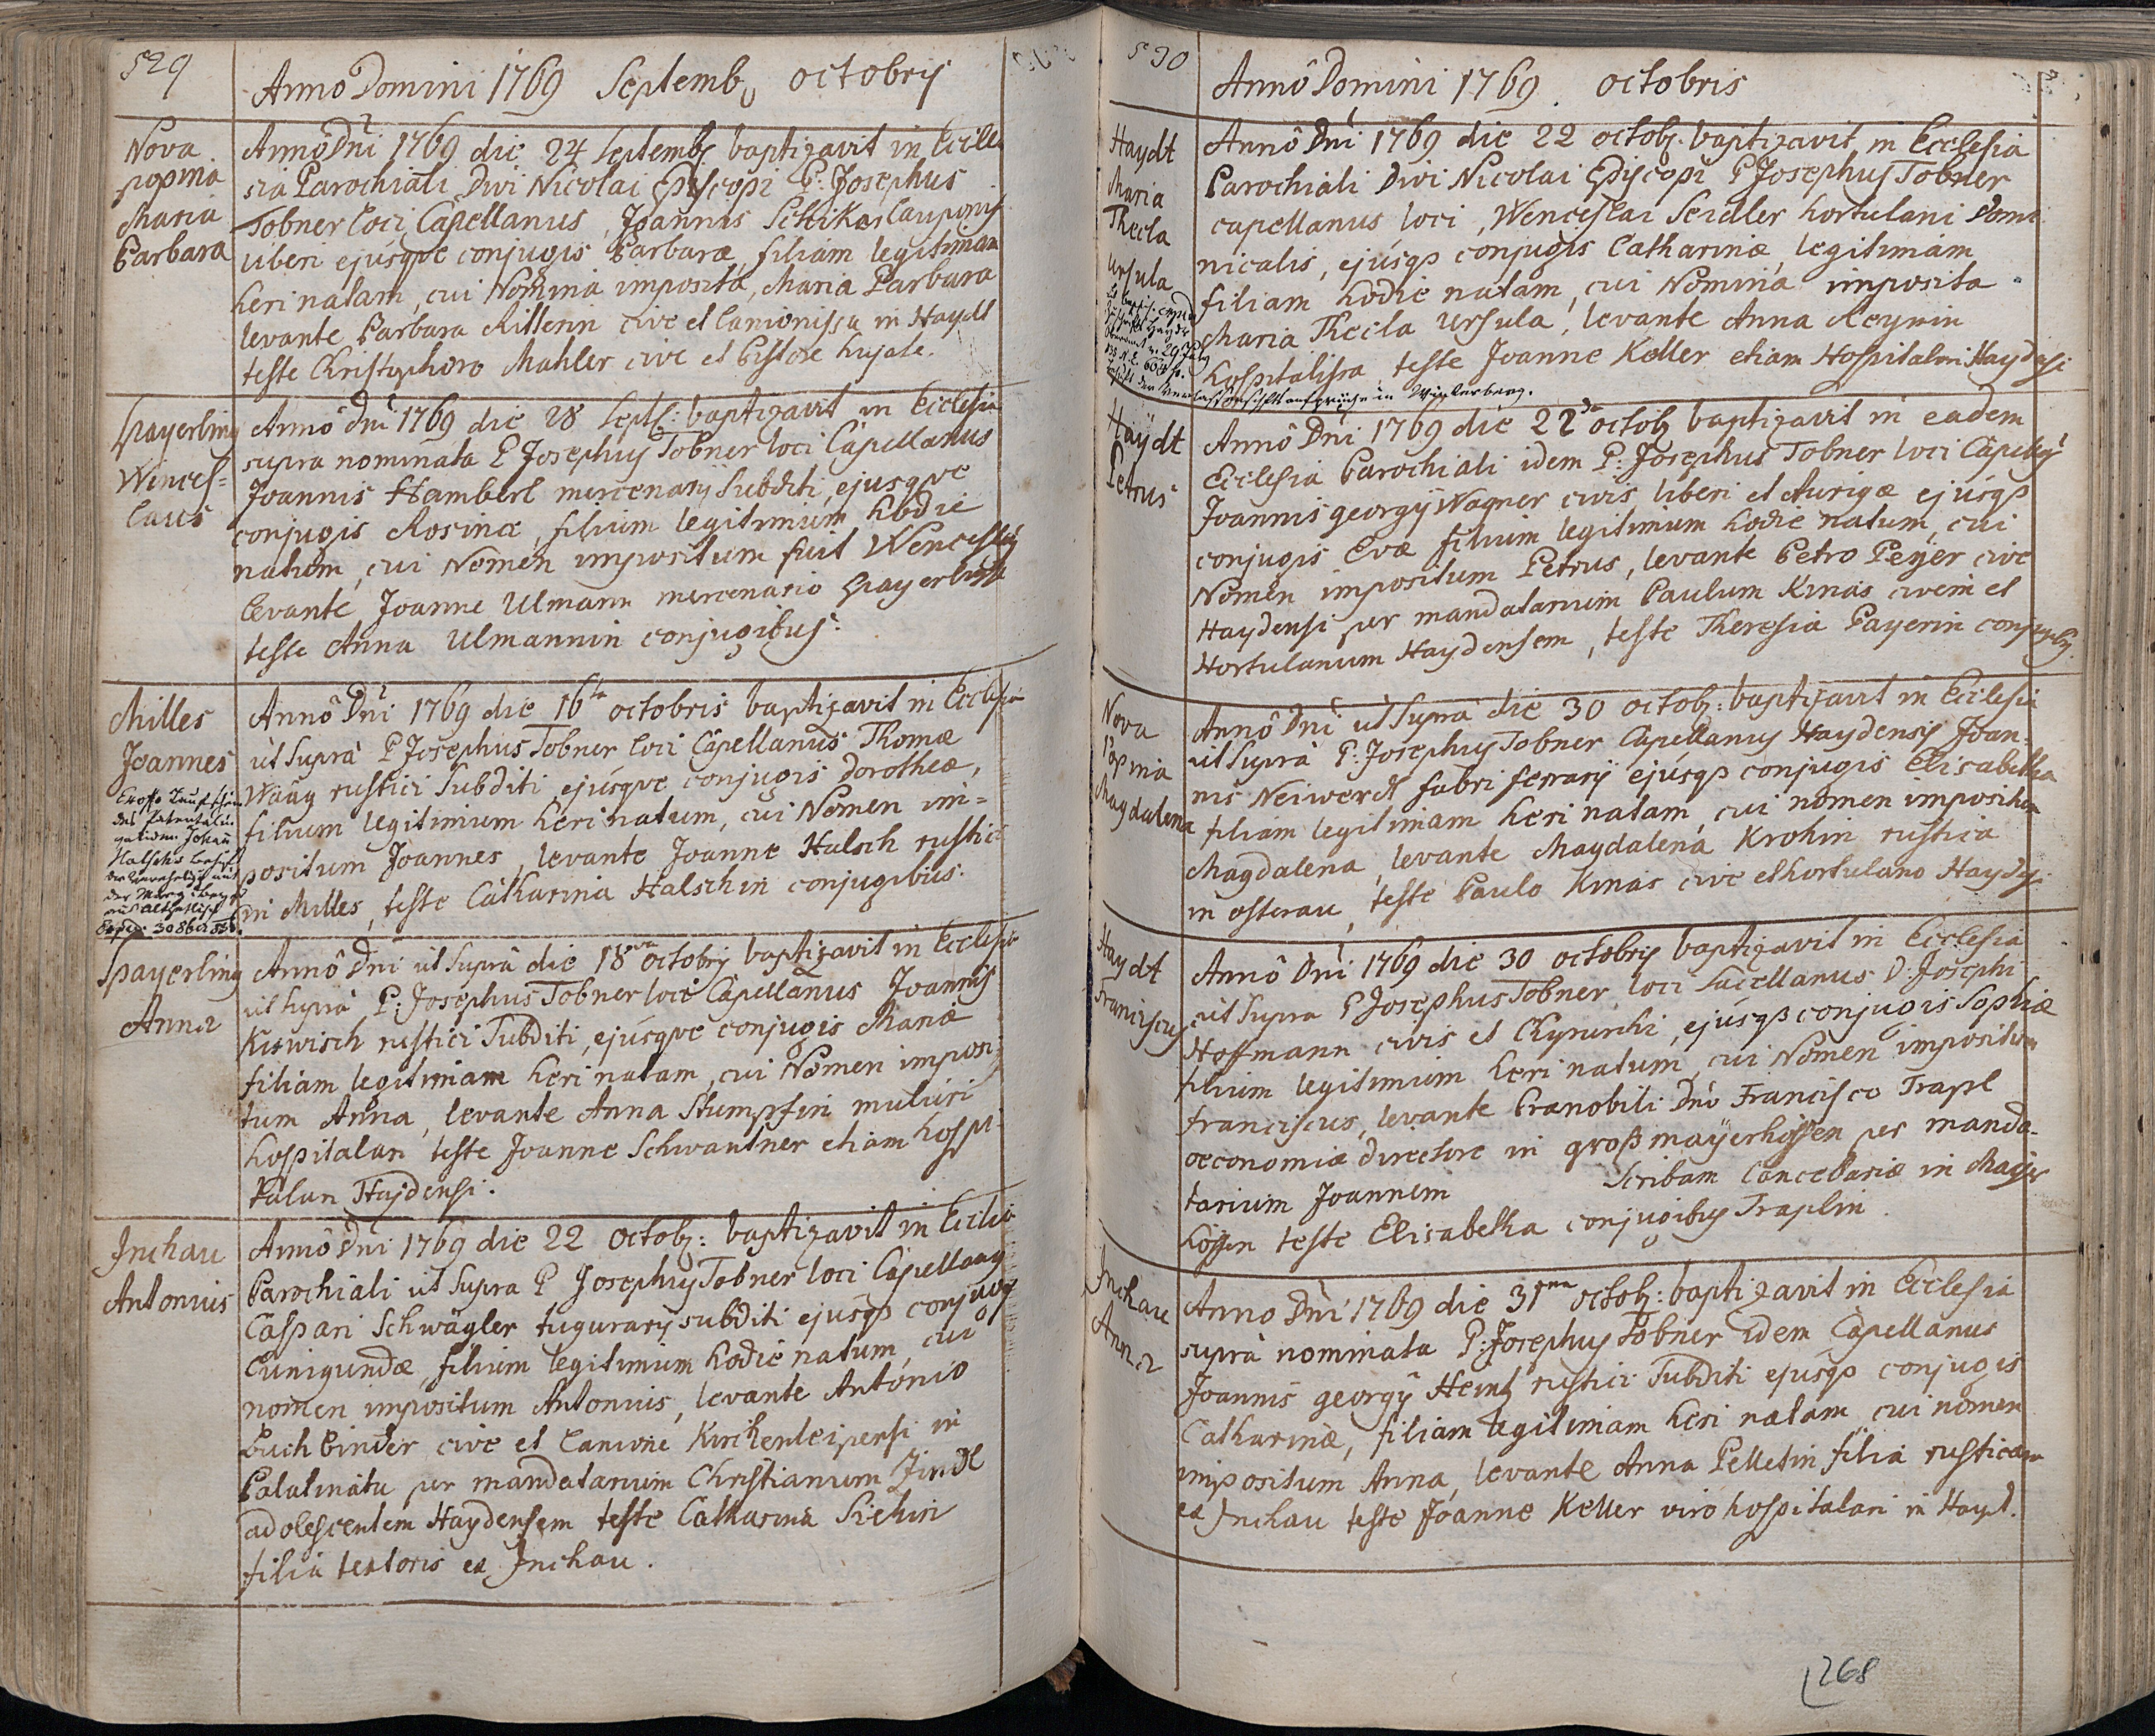 529
Anno Domini 1769 Septemb octobris
Nova
popina
Maria
Barbara
Anno Dni 1769 die 24 Septembr baptizavit in Eccle
sia Parochiali Divi Nicolai Episcopi P: Josephus
Tobner loci Capellanus, Joannis Cauponis
liberi ejusque conjugis Barbaræ, filiam legitimam
heri natam, cui Nomina imposita, Maria Barbara
levante Barbara Rillerin cive et Lanionissa in Haydt
teste Christophoro Mahler cive et Pistore hujate.
Spayerling
Wences=
laus
Anno Dni 1769 die 28 Sept: baptizavit in Ecclesia
supra nominata P Josephus Tobner loci Capellanus
Joannis Hamberl mercenarij Subditi, ejusque
conjugis Rosinæ, filium legitimum hodie
natum, cui Nomen impositum fuit Wenceslaus
levante Joanne Ulmann mercenario Spayerling
teste Anna Ulmannin conjugibus:
Milles
Joannes
Anno Dni 1769 die 16ta octobris baptizavit in Ecclesia
ut Supra P Josephus Tobner loci Capellanus Thomæ
Waag rustici Subditi, ejusque conjugis Dorotheæ,
filium legitimum heri natum, cui Nomen im=
positum Joannes, levante Joanne Halsch rustico
in Milles, teste Catharina Halschin conjugibus.
Spayerling
Anna
Anno Dni ut Supra die 18va octobris baptizavit in Ecclesia
ut supra P: Josephus Tobner loci Capellanus Joannis
Kuwisch rustici Subditi, ejusque conjugis Mariæ
filiam legitimam heri natam, cui Nomen imposi
tum Anna, levante Anna Stumpfin muliere
hospitalari teste Joanne Schwantner etiam hospi-
talari Haydensi.
Inchau
Antonius
Anno Dni 1769 die 22 Octob: baptizavit in Ecclesia
Parochiali ut Supra P Josephus Tobner loci Capellanus
Caspari Schwagler tugurarij subditi ejusqs conjugis
Cunigundæ, filium legitimum hodie natum, cui
nomen impositum Antonius, levante Antonio
Buchbinder cive et Lanione Kirchenleipensi in
Palatinatu per mandatarium Christianum Zindl
adolescentem Haydensem teste Catharina Sichin
filia textoris ex Inchau.
530
Anno Domini 1769. octobris
Haydt
Maria
Thecla
Ursula
Anno Dni 1769 die 22 octob. baptizavit in Ecclesia
Parochiali Divi Nicolai Episcopi P Josephus Tobner
capellanus loci, Wenceslai Seidler hortulani Domi
nicalis, ejusqs conjugis Catharinæ, legitimam
filiam hodie natam, cui Nomina imposita
Maria Thecla Ursula, levante Anna Reymin
hospitalissa teste Joanne Keller etiam Hospitalari Haydensi
Haydt
Petrus
Anno Dni 1769 die 22da octob baptizavit in eadem
Ecclesia Parochiali idem P: Josephus Tobner loci Capells
Joannis georgij Wagner civis liberi et Aurigæ ejusqs
conjugis Evæ filium legitimum hodie natum, cui
Nomen impositum Petrus, levante Petro Peyer cive
Haydensi per mandatarium Paulum Kinas civem et
Hortulanum Haydensem, teste Theresia Payerin conjugibg.
Nova
Popina
Magdalena
Anno Dni ut Supra die 30 octob: baptizavit in Ecclesia
ut Supra P: Josephus Tobner Capellanus Haydensis Joan-
nis Neiwerdt fabri ferrarij ejusqs conjugis Elisabetha
filiam legitimam heri natam, cui nomen impositum
Magdalena, levante Magdalena Krohin rustica
in osterau, teste Paulo Kinas cive et hortulano Haydsi
Haydt
Franciscus
Anno Dni 1769 die 30 octobris baptizavit in Ecclesia
ut Supra P Josephus Tobner loci Sacellanus D: Josephi
Hoffmann civis et Chyrurchi, ejusqs conjugis Sophiæ
filium legitimum heri natum, cui Nomen impositum
Franciscus, levante Prænobili Dno Francisco Trapl
oeconomiæ directore in großmayerhöffen per manda-
tarium Joannem Scribam Cancellariæ in Mayer
höffen teste Elisabetha conjugibus Traplin.
Inchau
Anna
Anno Dni 1769 die 31ma octob: baptizavit in Ecclesia
supra nominata P: Josephus Tobner idem Capellanus
Joannis georgij Heintz rustici Subditi ejusqs conjugis
Catharinæ, filiam legitimam heri natam cui nomen
impositum Anna, levante Anna Pelletin filia rusticam
ex Inchau teste Joanne Keller viro hospitalari in Hayd.
268